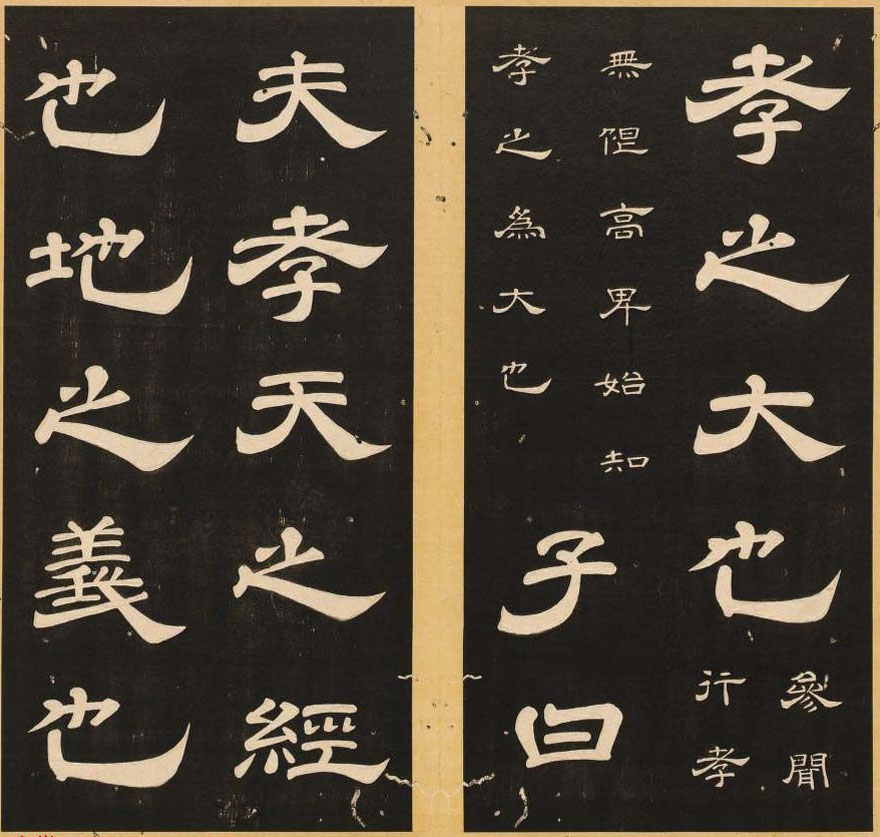 孝之大也
參聞
行孝
無限高卑始知
孝之為大也
子曰
夫孝天之經
也地之義也